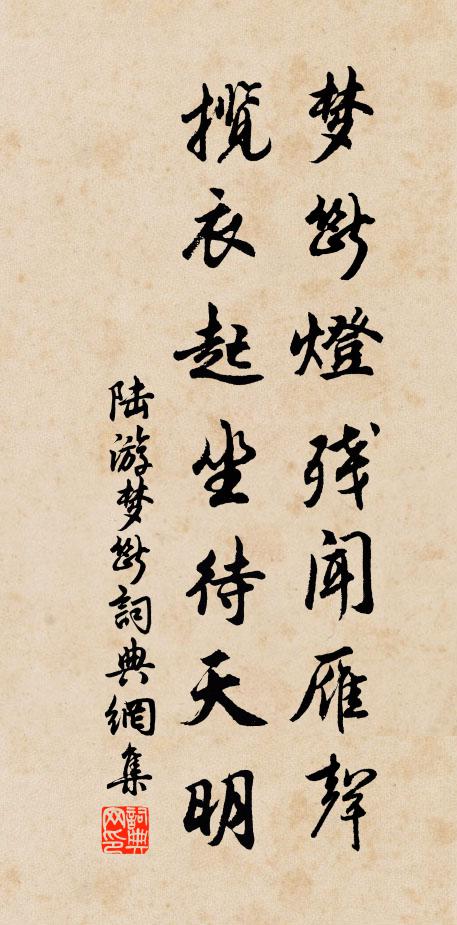 梦断燈残闻雁聲
揽衣起坐待天明
陆游梦断詞典網集
詞典网印